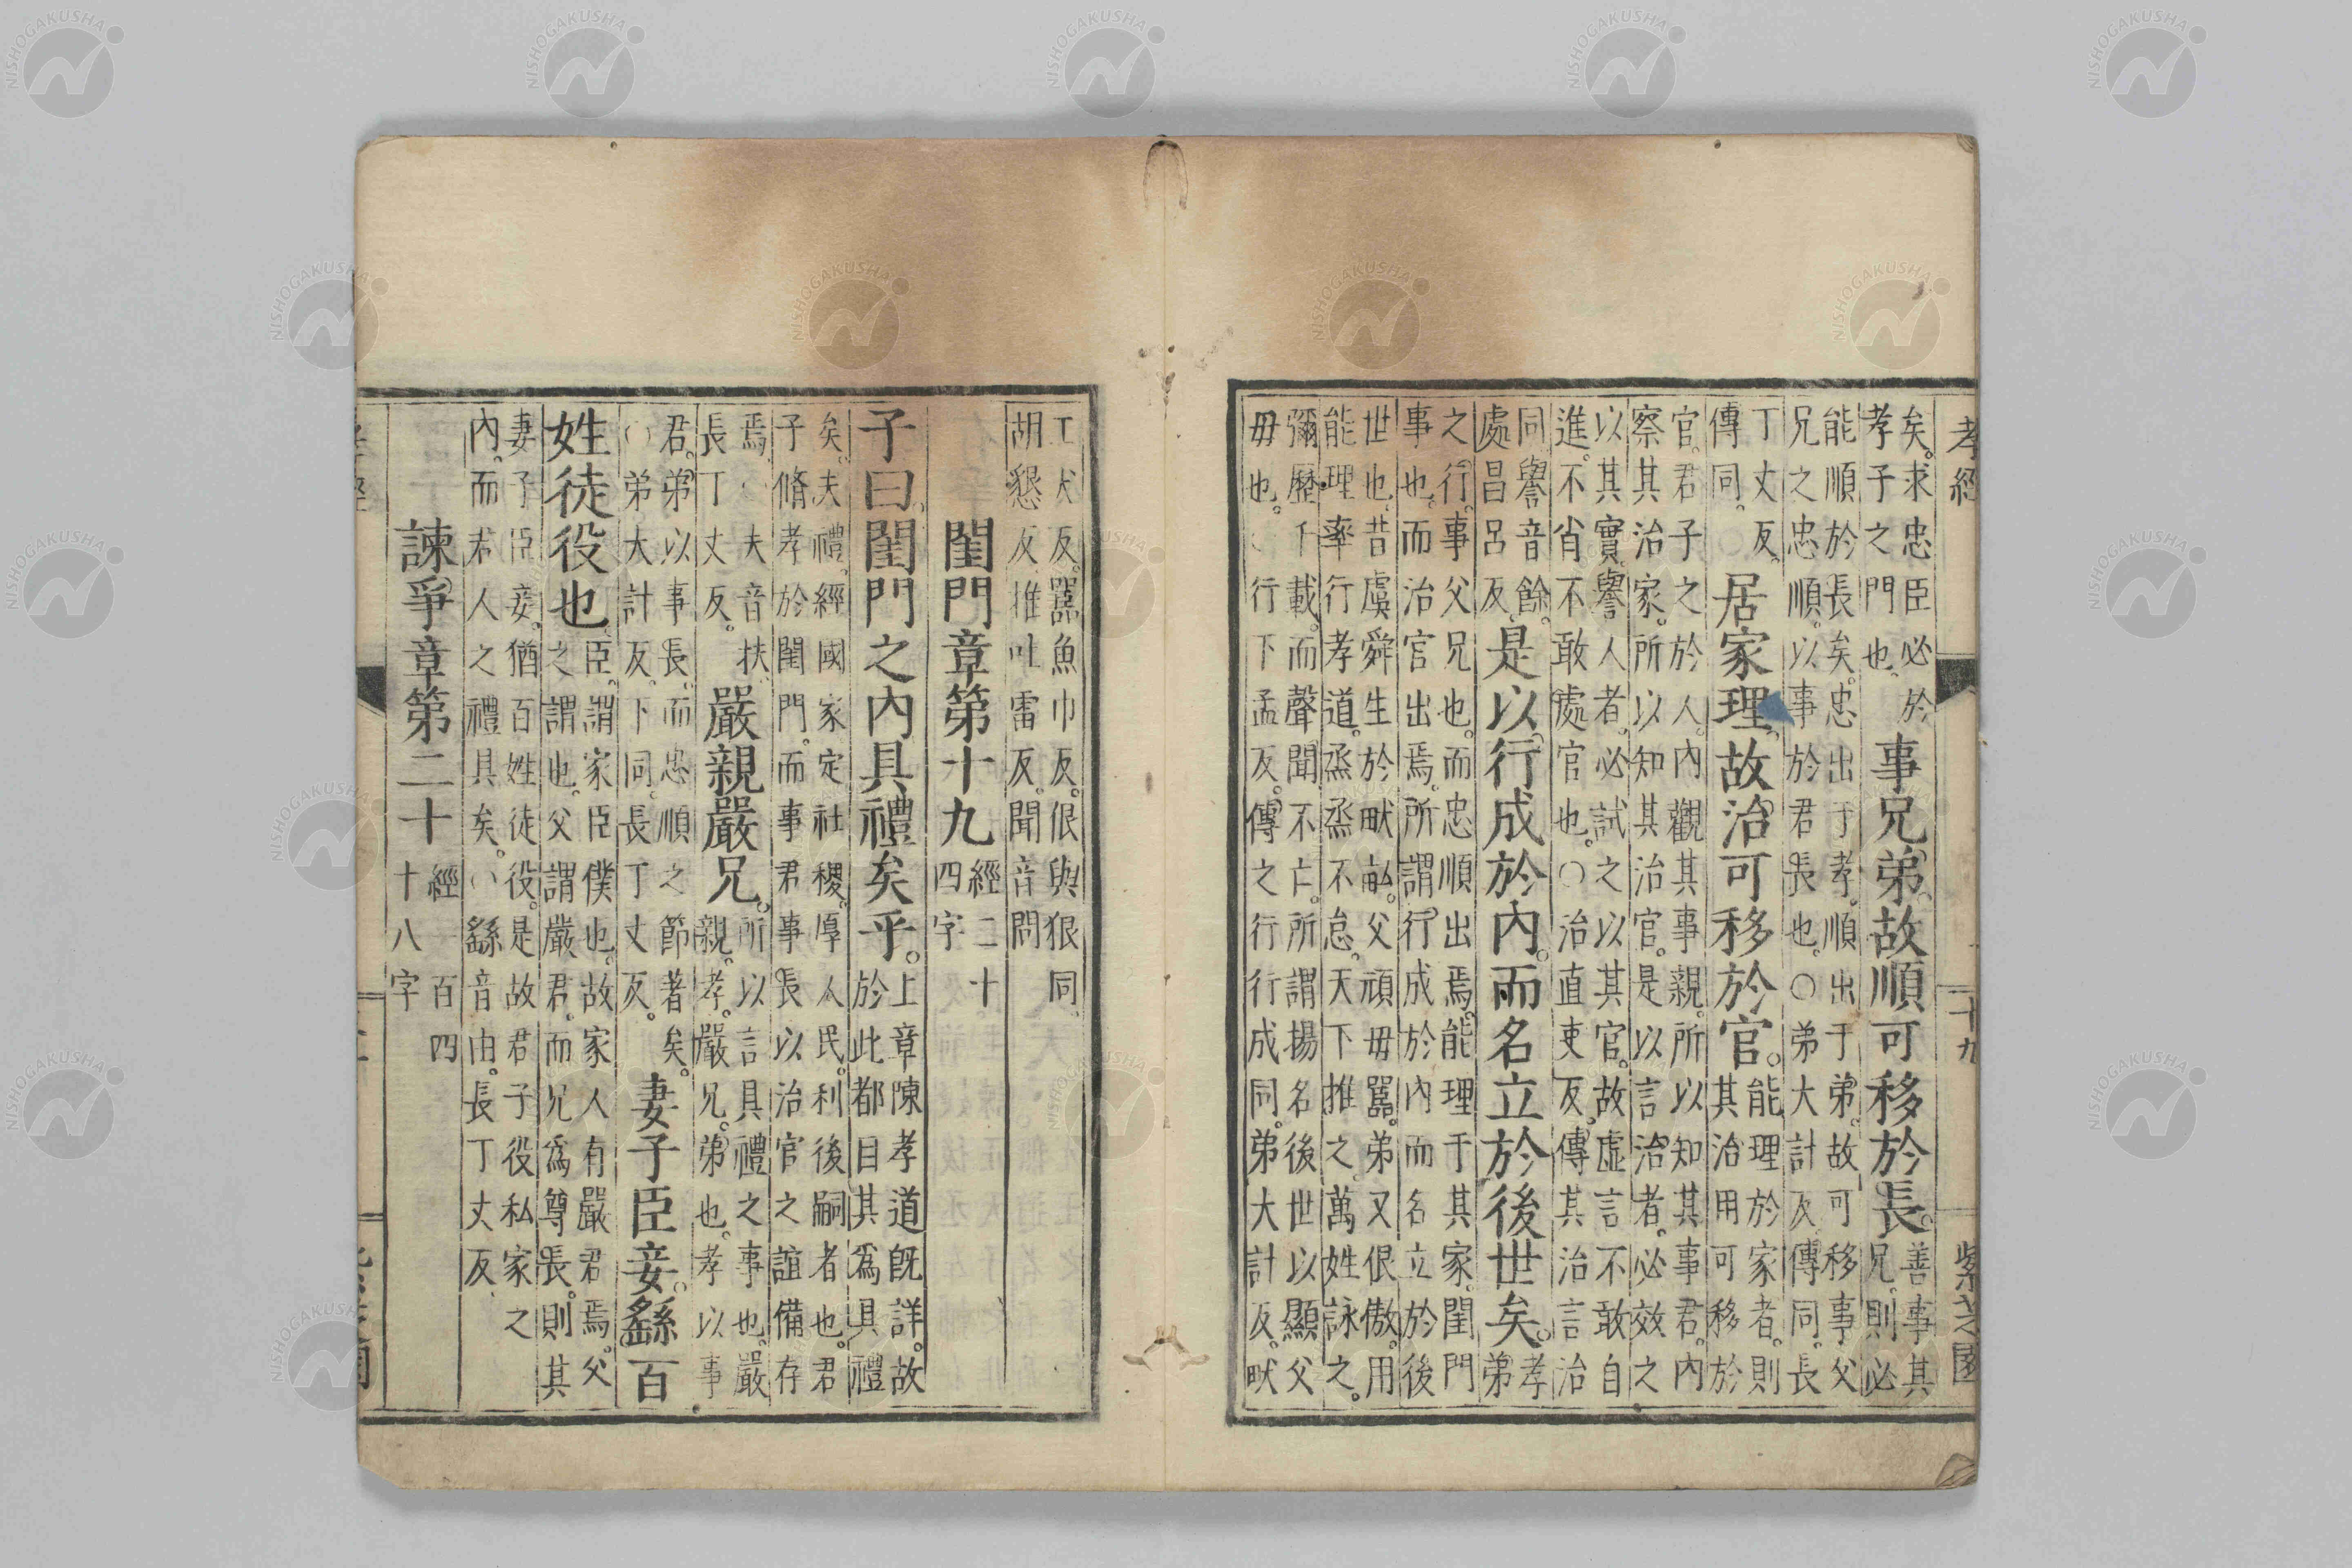 孝經 十九 紫芝園
矣。求忠臣必於孝子之門也。事兄弟。故順可移於長。善事其兄。則必
能順於長矣。忠出于孝。順出于弟。故可移事父兄之忠順。以事於君長也。○弟大計反。傳同。長
丁丈反。傳同。○居家理。故治可移於官。能理於家者。則其治用可移於
官。君子之於人。內觀其事親。所以知其事君。內察其治家。所以知其治官。是以言治者。必效之
以其實。譽人者。必試之以其官。故虛言不敢自進。不肖不敢處官也。○治直吏反。傳其治言治
同。譽音餘。處昌呂反。是以行成於內。而名立於後世矣。孝弟
之行。事父兄也。而忠順出焉。能理于其家。閨門事也。而治官出焉。所謂行成於內而名立於後
世也。昔虞舜生於畎畝。父頑毋嚚。弟又佷傲。用能理率行孝道。烝烝不怠。天下推之。萬姓詠之。
彌歷千載。而聲聞不亡。所謂揚名後世以顯父毋也。○行下孟反。傳之行行成同。弟大計反。畎
工犬反。嚚魚巾反。佷與狠同。胡懇反。推吐雷反。聞音問
閨門章第十九 經二十四字
子曰。閨門之內。具禮矣乎。上章陳孝道旣詳。故於此都目其爲具禮
矣。夫禮。經國家。定社稷。厚人民。利後嗣者也。君子脩孝於閨門。而事君事長以治官之誼備存
焉。○夫音扶。長丁丈反。嚴親嚴兄。所以言具禮之事也。嚴親。孝。嚴兄。弟也。孝以事
君。弟以事長。而忠順之節著矣。○弟大計反。下同。長丁丈反。妻子臣妾。繇百
姓徒役也。臣。謂家臣僕也。故家人有嚴君焉。父之謂也。父謂嚴君。而兄爲尊長。則其
妻子臣妾。猶百姓徒役。是故君子役私家之內。而君人之禮具矣。○繇音由。長丁丈反。
諫爭章第二十 經一百四十八字